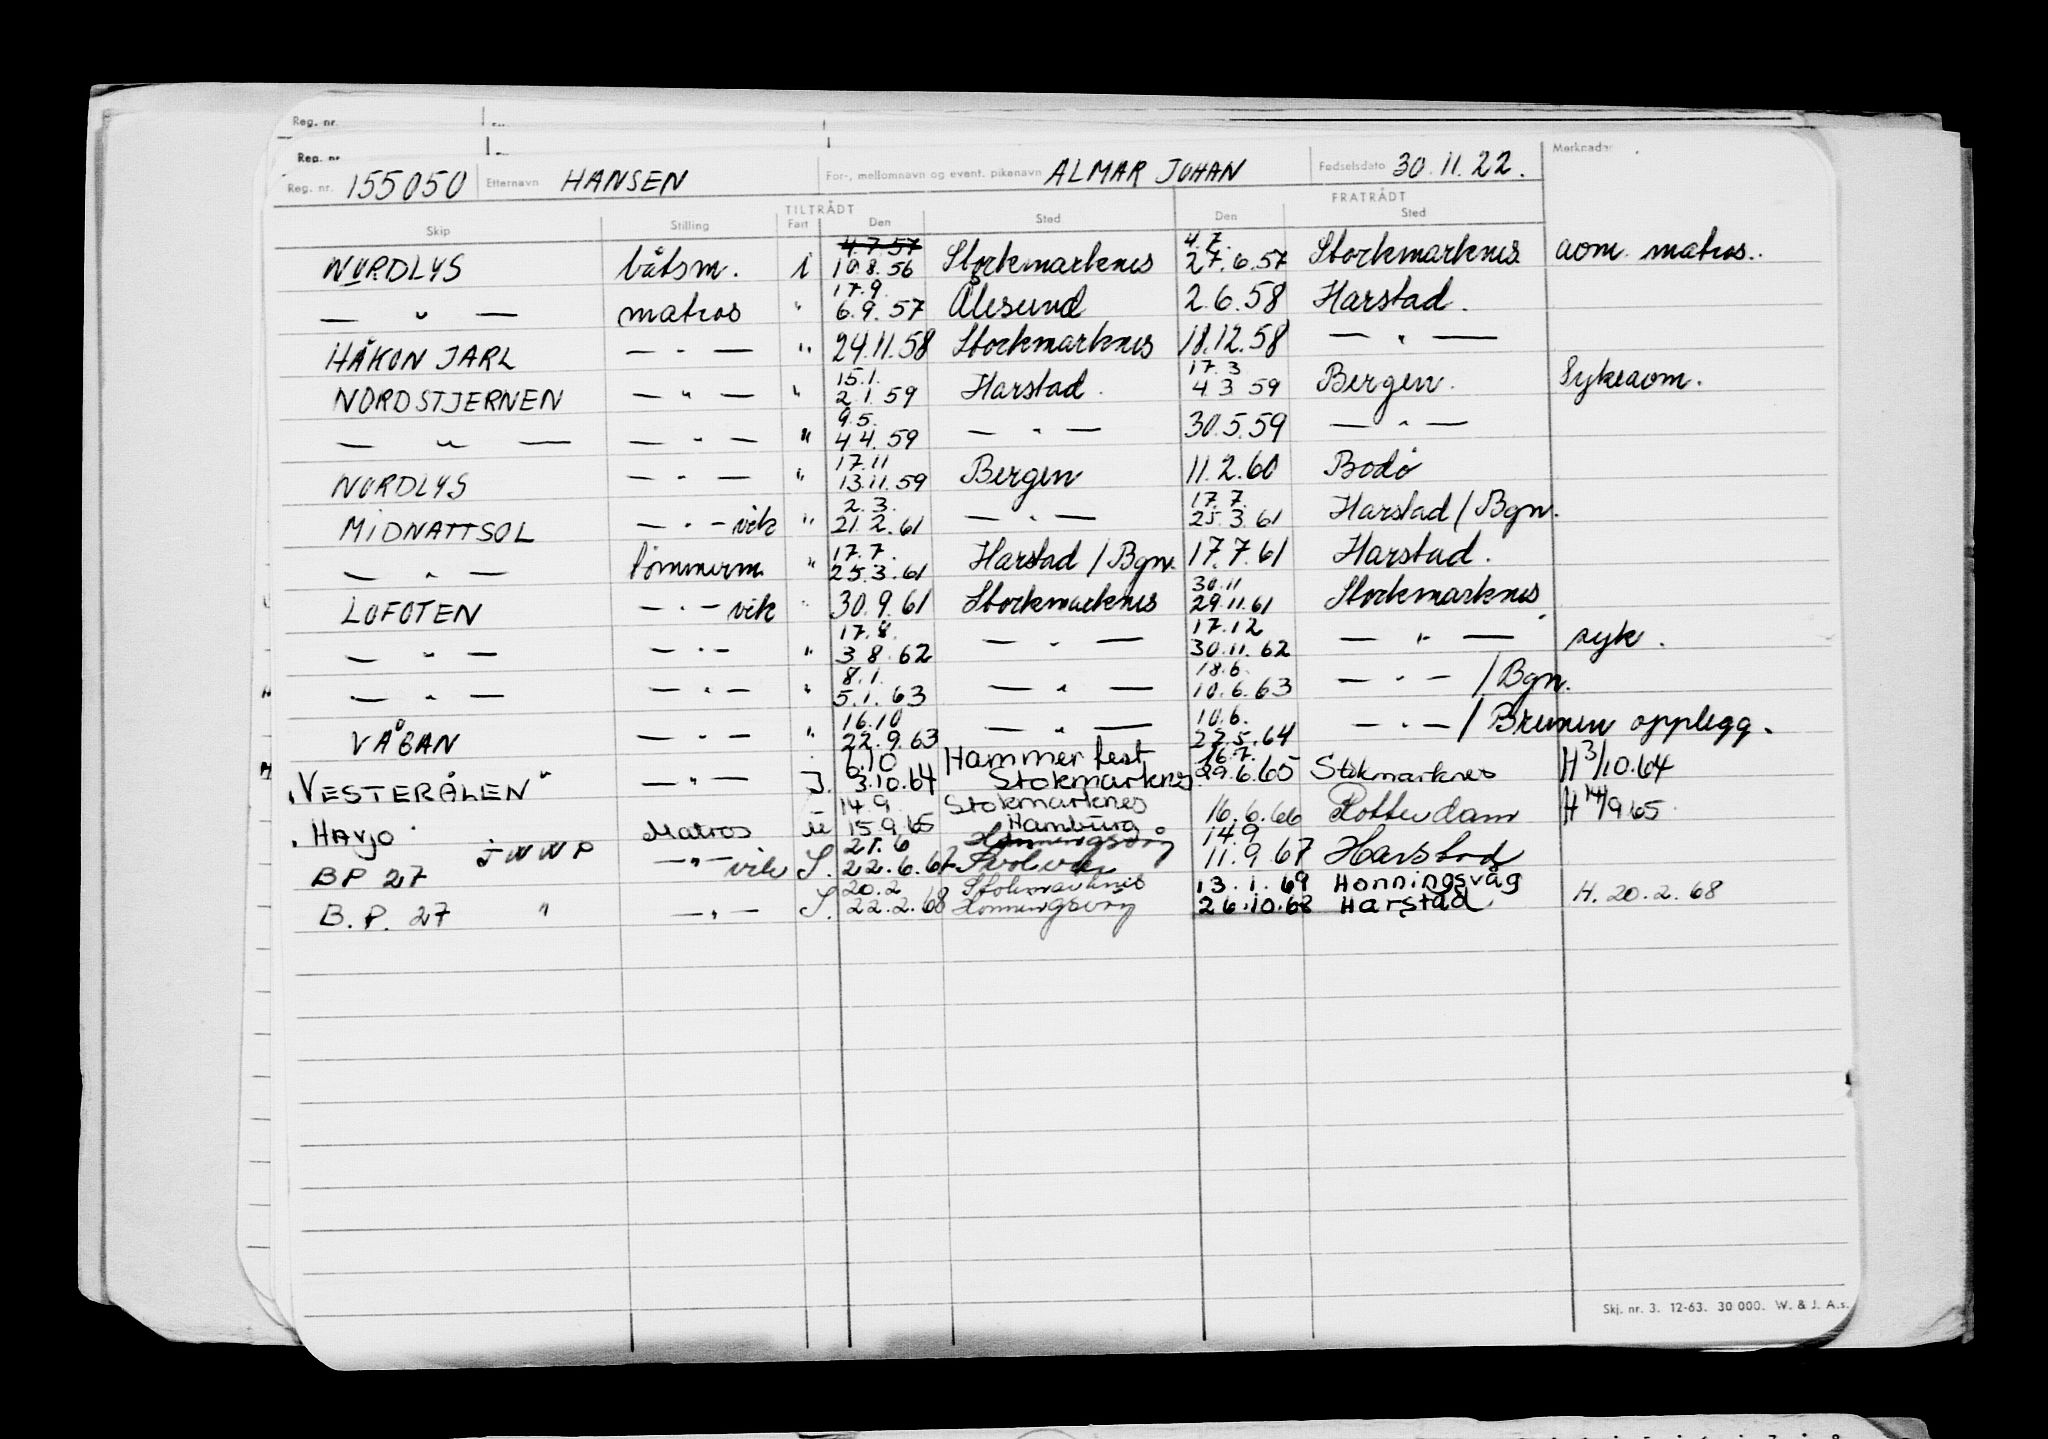 Reg. nr.
Reg. nr.
Reg. nr. 155050 Etternavn HANSEN For-, mellomnavn og event. pikenavn ALMAR JOHAN Fødselsdato 30.11.22. Merknader
TILTRÅDT FRATRÅDT
Skip Stilling Fart Den Sted Den Sted
4.7.57 4.7.
NORDLYS båtsm. i 10.8.56 Stockmarknes 27.6.57 Stockmarknes aom. matros.
17.9.
— " — matros " 6.9.57 Ålesund 2.6.58 Harstad.
HÅKON JARL — " — " 24.11.58 Stockmarknes 18.12.58 — " —
15.1. 17.3
NORDSTJERNEN — " — " 2.1.59 Harstad. 4.3.59 Bergen. Sykeaom.
9.5.
— " — — " — " 4.4.59 — " — 30.5.59 — " —
17.11
NORDLYS — " — " 13.11.59 Bergen 11.2.60 Bodö
2.3. 17.7.
MIDNATTSOL — " — vik " 21.2.61 — " — 25.3.61 Harstad / Bgn.
17.7.
— " — tömmerm. " 25.3.61 Harstad / Bgn. 17.7.61 Harstad.
30.11
LOFOTEN — " — vik " 30.9.61 Stockmarknes 29.11.61 Stockmarknes
17.8. 17.12
— " — — " — " 3.8.62 — " — 30.11.62 — " — syk.
8.1. 18.6.
— " — — " — " 5.1.63 — " — 10.6.63 — " — / Bgn.
16.10 10.6.
VÅGAN — " — " 22.9.63 — " — 22.5.64 — " — / Bremen opplegg.
6.10 Hammerfest 16.7.
"VESTERÅLEN" — " — J. 3.10.64 Stokmarknes 29.6.65 Stokmarknes H 3/10.64
14.9 Stokmarknes
"HAVJO" Matros u 15.9.65 Hamburg 16.6.66 Rotterdam H 14/9 65
21.6 Honningsvåg 14.9
BP 27 — " — vik S. 22.6.67 Svolvær 11.9.67 Harstad
20.2 Stokmarknes 13.1.69 Honningsvåg
B.P. 27 " — " — S. 22.2.68 Honningsvåg 26.10.68 Harstad H. 20.2.68
Skj. nr. 3. 12-63. 30 000. W. & J. A.s.